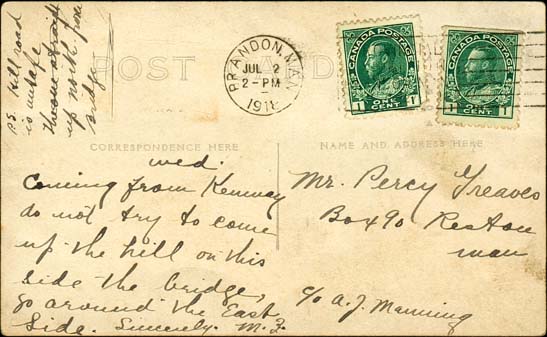 P.S. Hill road
is unsafe
up north from
bridge
POST
BRANDON, MAN
JUL 2
2-PM
191
CANADA POSTAGE
1 ONE CENT 1
CANADA POSTAGE
1 ONE CENT 1
CORRESPONDENCE HERE
NAME AND ADDRESS HERE
Wed.
Coming from Kenway
do not try to come
up the hill on this
side the bridge,
go around the East
Side. Sincerely. M.
Mr. Percy Greaves
Box 90 Reston
Man
c/o A. J. Manning